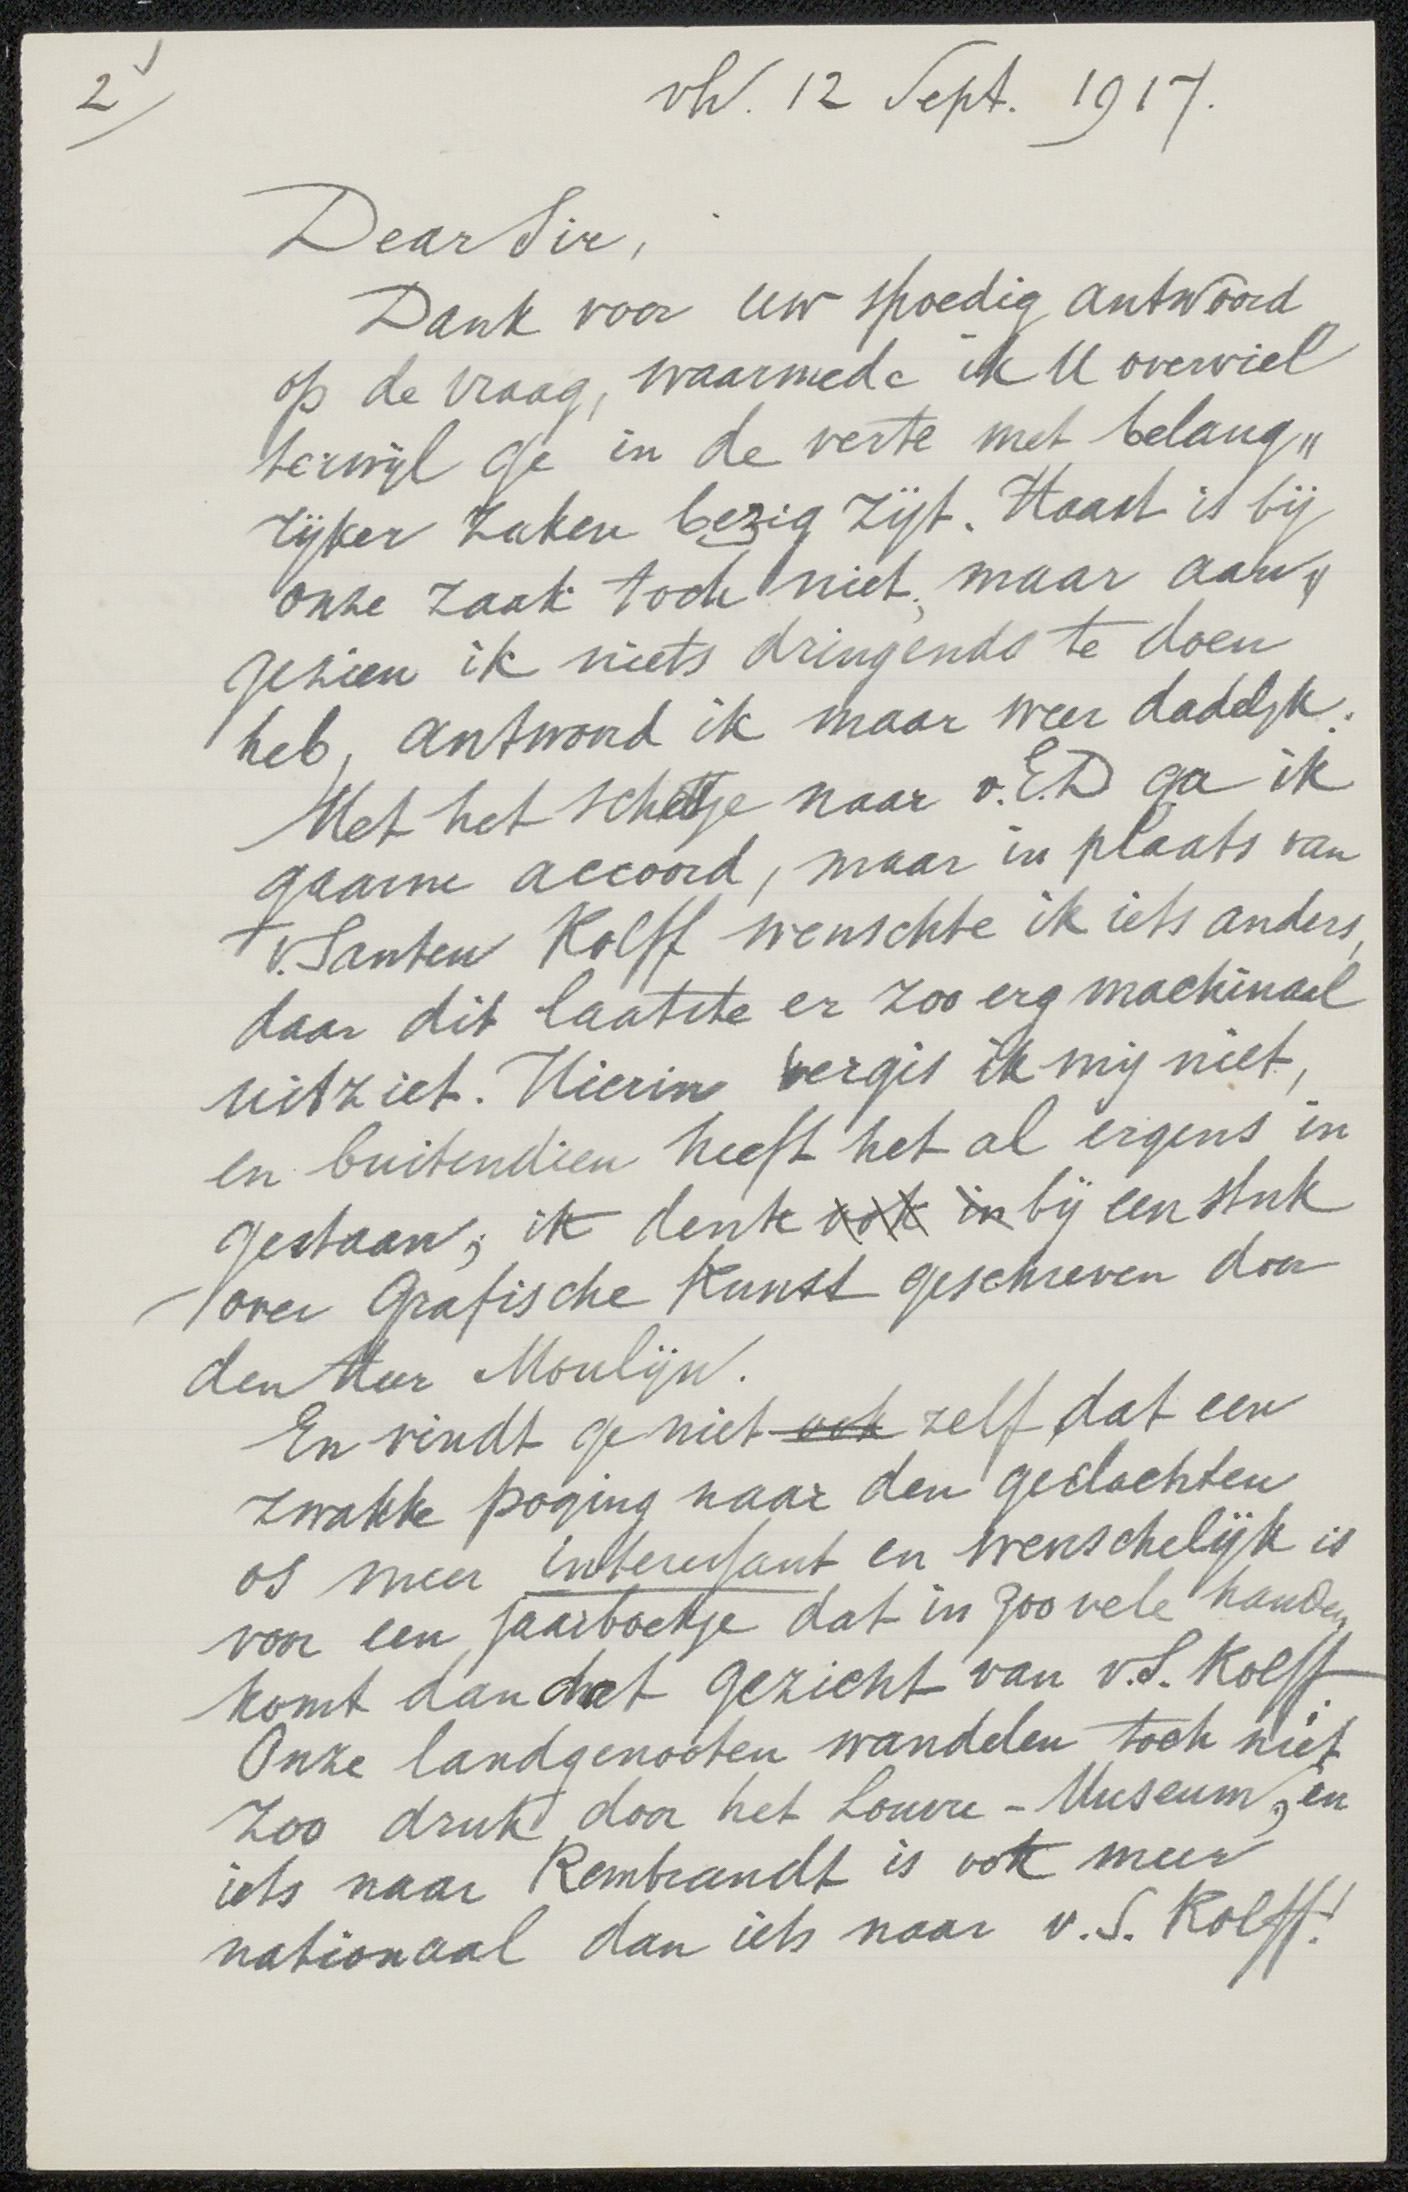 2
vh. 12 Sept. 1917.
Dear Sir,
Dank voor uw spoedig antwoord
op de vraag, waarmede ik U overviel
terwijl ge in de verte met belang„
rijker zaken bezig zijt. Haast is bij
onze zaak toch niet, maar aan„
gezien ik niets dringends te doen
heb, antwoord ik maar weer dadelijk.
Met het schetsje naar v.E.D ga ik
gaarne accoord, maar in plaats van
v. Santen Kolff wenschte ik iets anders,
daar dit laatste er zoo erg machinaal
uitziet. Hierin vergis ik mij niet,
en buitendien heeft het al ergens in
gestaan; ik denk ook in bij een stuk
over Grafische Kunst geschreven door
den Heer Moulijn.
En vindt ge niet ook zelf, dat een
zwakke poging naar den geslachten
os meer interessant en wenschelijk is
voor een jaarboekje dat in zoo vele handen
komt dan het gezicht van v.S. Kolff.
Onze landgenooten wandelen toch niet
zoo druk door het Louvre-Museum, en
iets naar Rembrandt is ook meer
nationaal dan iets naar v.S. Kolff!